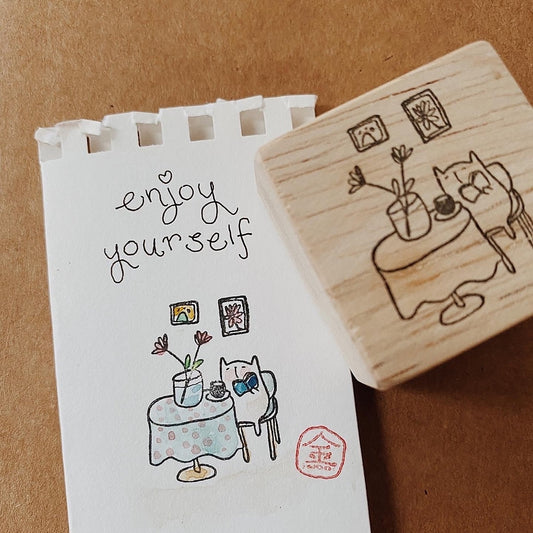 enjoy
yourself
金